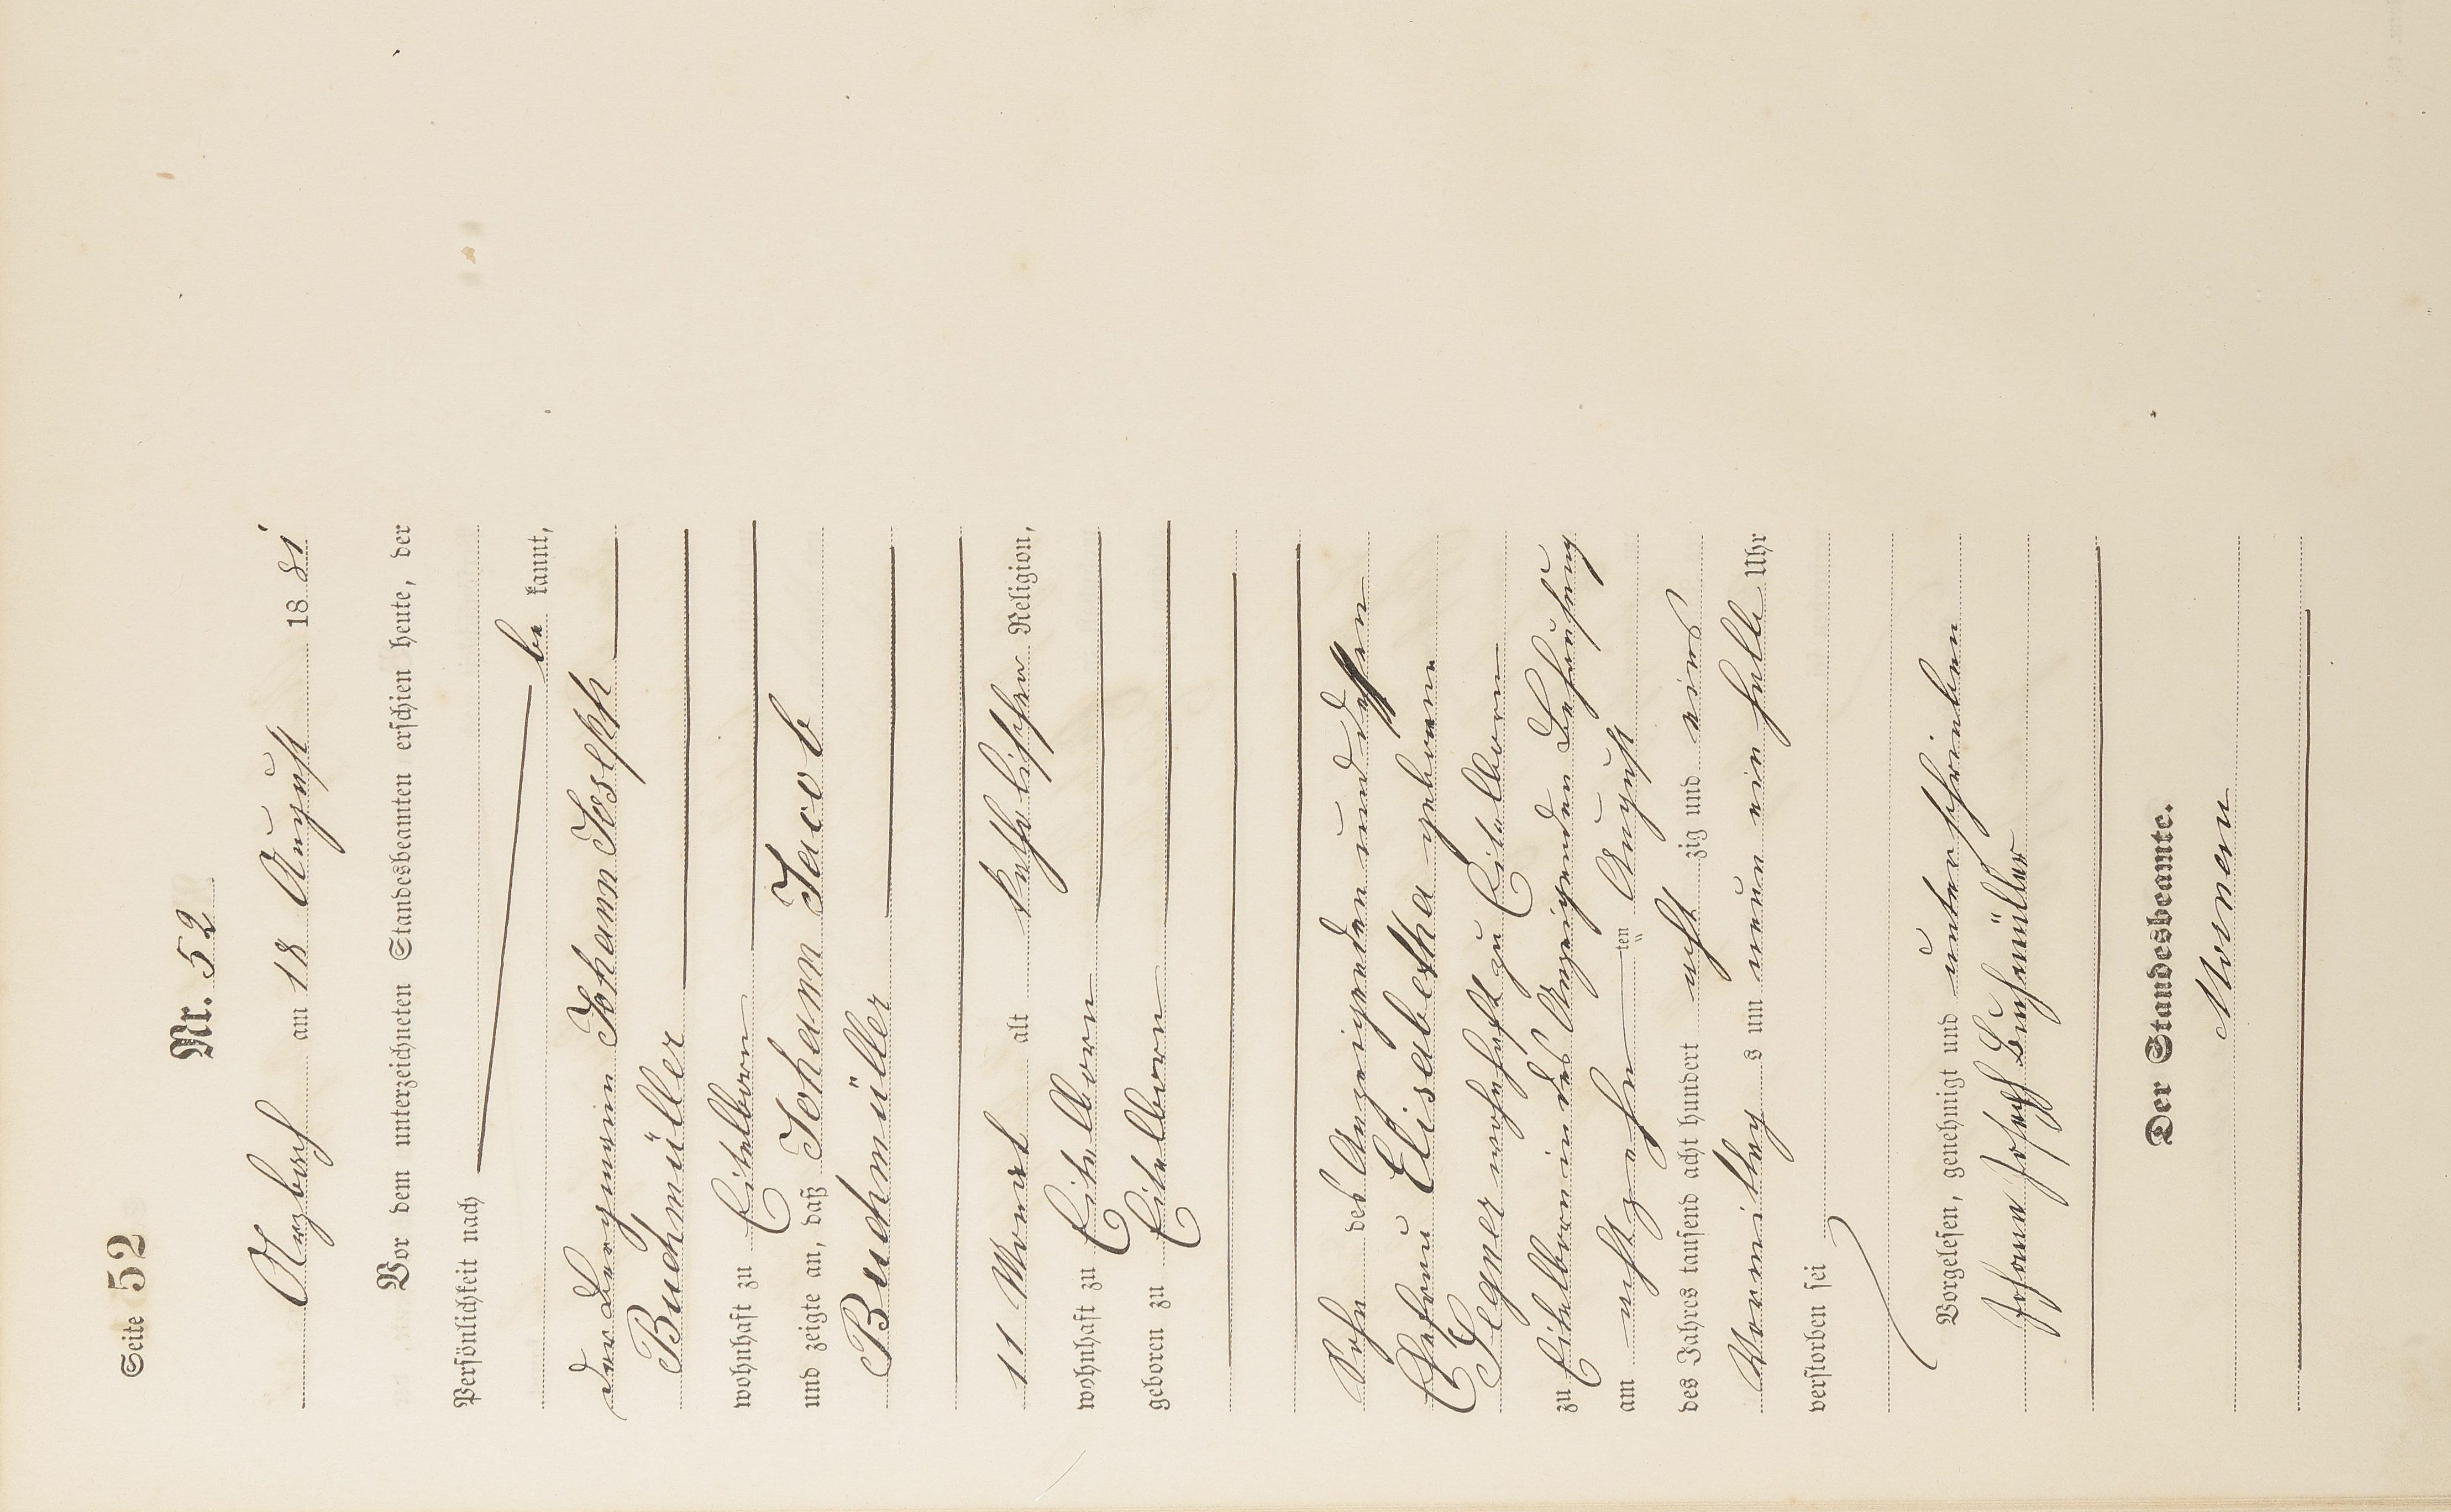 Seite 52
Nr. 52
Arzbach am 18 August 18 81
Vor dem unterzeichneten Standesbeamten erschien heute, der
Persönlichkeit nach
be kannt,
der Bergmann Johann Joseph
Buchmüller
wohnhaft zu Eitelborn
und zeigte an, daß Johann Jacob
Buchmüller
11 Monat alt katholischer Religion,
wohnhaft zu Eitelborn
geboren zu Eitelborn
Sohn des Anzeigenden und dessen
Ehefrau Elisabetha geborene
Segner wohnhaft zu Eitelborn
zu Eitelborn in des Anzeigenden Behausung
am achtzehn ten August
des Jahres tausend acht hundert acht zig und eins
Vormittag s um neun ein halb Uhr
verstorben sei
Vorgelesen, genehmigt und unterschrieben
Johann Joseph Buchmüller
Der Standesbeamte.